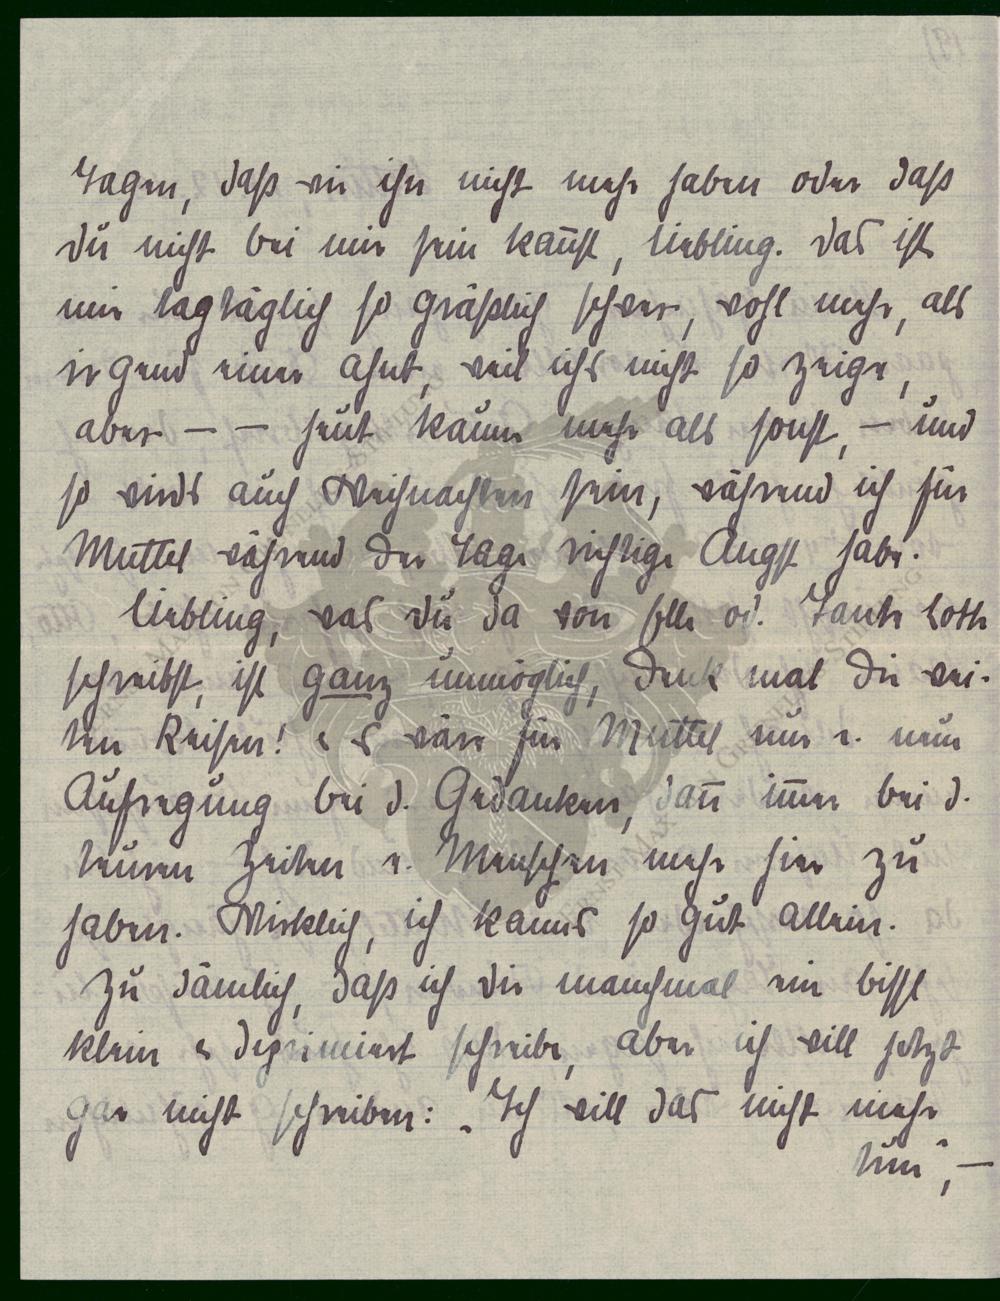 Tagen, daß wir ihn nicht mehr haben oder daß
du nicht bei mir sein kannst, Liebling. Das ist
mir tagtäglich so gräßlich schwer, wohl mehr, als
irgend einer ahnt, weil ichs nicht so zeige,
aber – – heut kaum mehr als sonst, – und
so wirds auch Weihnachten sein, während ich für
Muttel während der Tage richtige Angst habe.
Liebling, was du da von Elle od. Tante Lotte
schreibst, ist ganz unmöglich, denk mal die wei-
ten Reisen! Es wäre für Muttel nur e. neue
Aufregung bei d. Gedanken, dann immer bei d.
teuren Zeiten e. Menschen mehr hier zu
haben. Wirklich, ich kanns so gut allein.
Zu dämlich, daß ich dir manchmal ein bissl
klein & deprimiert schreibe, aber ich will jetzt
gar nicht schreiben: „Ich will das nicht mehr
tun", –